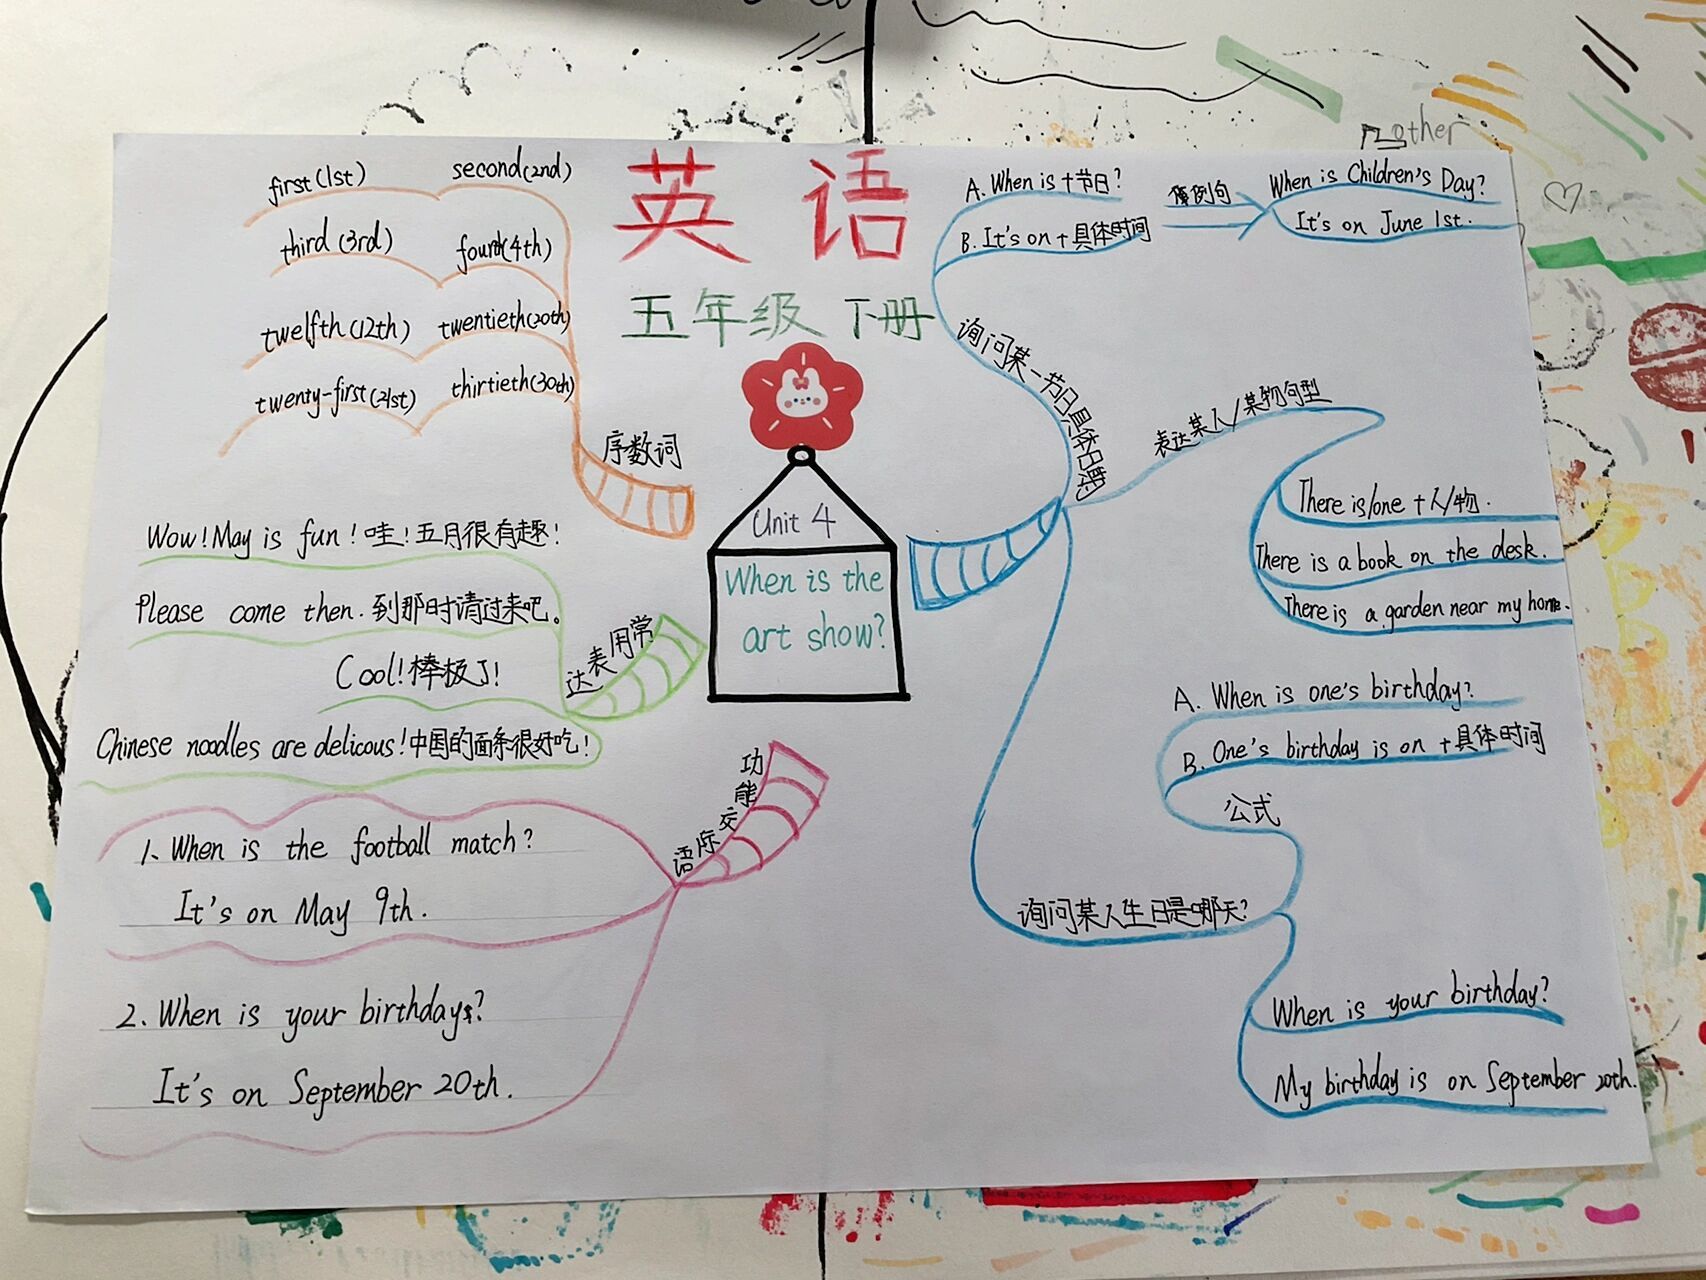 mother
英语
五年级 下册
Unit 4
When is the
art show?
序数词
first(1st)
second(2nd)
third(3rd)
fourth(4th)
twelfth(12th)
twentieth(20th)
twenty-first(21st)
thirtieth(30th)
常用表达
Wow! May is fun! 哇!五月很有趣!
Please come then. 到那时请过来吧。
Cool! 棒极了!
Chinese noodles are delicous! 中国的面条很好吃!
功能交际语
1、When is the football match?
It's on May 9th.
2. When is your birthday?
It's on September 20th.
询问某一节日具体日期
A. When is +节日?
B. It's on +具体时间
例句
When is Children's Day?
It's on June 1st.
表达某人/某物句型
There is/one +人/物.
There is a book on the desk.
There is a garden near my home.
询问某人生日是哪天?
公式
A. When is one's birthday?
B. One's birthday is on +具体时间
When is your birthday?
My birthday is on September 20th.